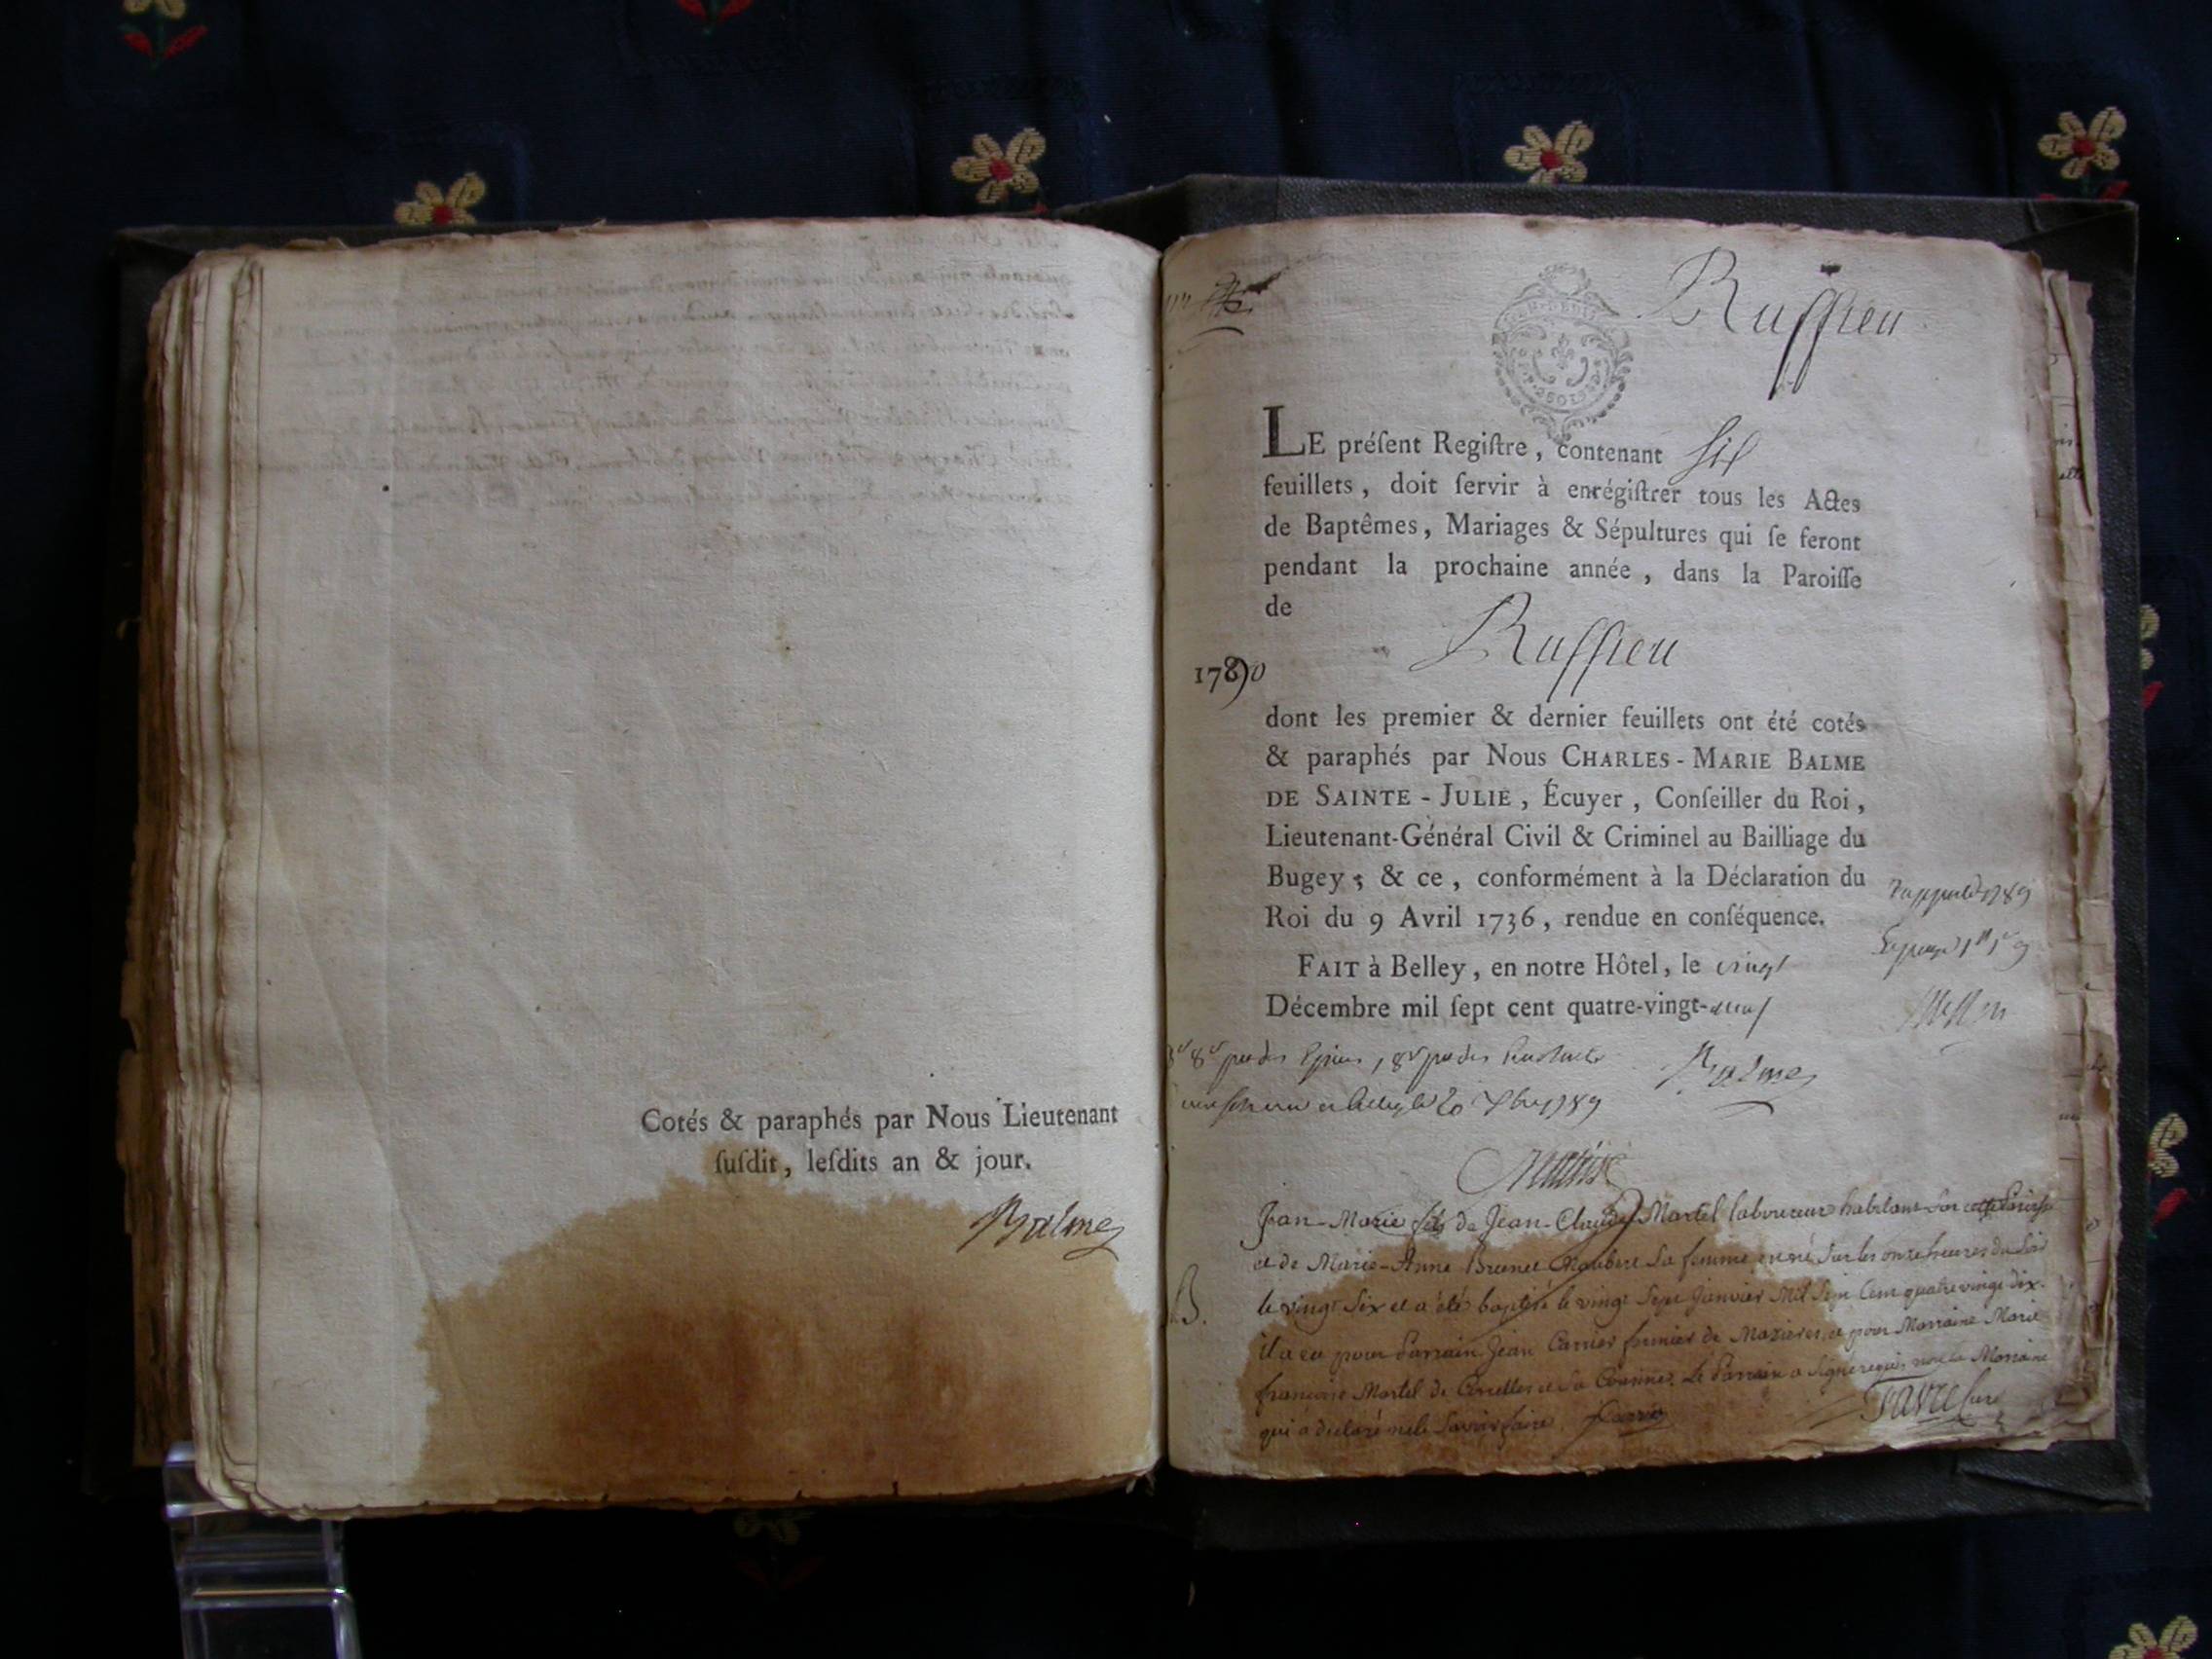 Cotés & paraphés par Nous Lieutenant
ſuſdit, leſdits an & jour.
Balme
Ruffieu
LE préſent Regiſtre, contenant six
feuillets, doit ſervir à enrégiſtrer tous les Actes
de Baptêmes, Mariages & Sépultures qui ſe feront
pendant la prochaine année, dans la Paroiſſe
de
Ruffieu
1790
dont les premier & dernier feuillets ont été cotés
& paraphés par Nous CHARLES-MARIE BALME
DE SAINTE-JULIE, Écuyer, Conſeiller du Roi,
Lieutenant-Général Civil & Criminel au Bailliage du
Bugey; & ce, conformément à la Déclaration du
Roi du 9 Avril 1736, rendue en conſéquence.
FAIT à Belley, en notre Hôtel, le vingt
Décembre mil ſept cent quatre-vingt-neuf
Balme
Jean-Marie fils de Jean-Claude Martel laboureur habitant sur cette Paroisse
et de Marie-Anne Brunet sa femme est né sur les onze heures du soir
B. le vingt six et a été baptisé le vingt sept Janvier Mil Sept Cent quatre vingt dix.
il a eu pour Parrain Jean Carrier fermier de Mazieres, et pour Marraine Marie
françoise Martel de sa Cousine. Le Parrain a signé requis non la Marraine
qui a déclaré ne le savoir faire. Carrier Favre Curé